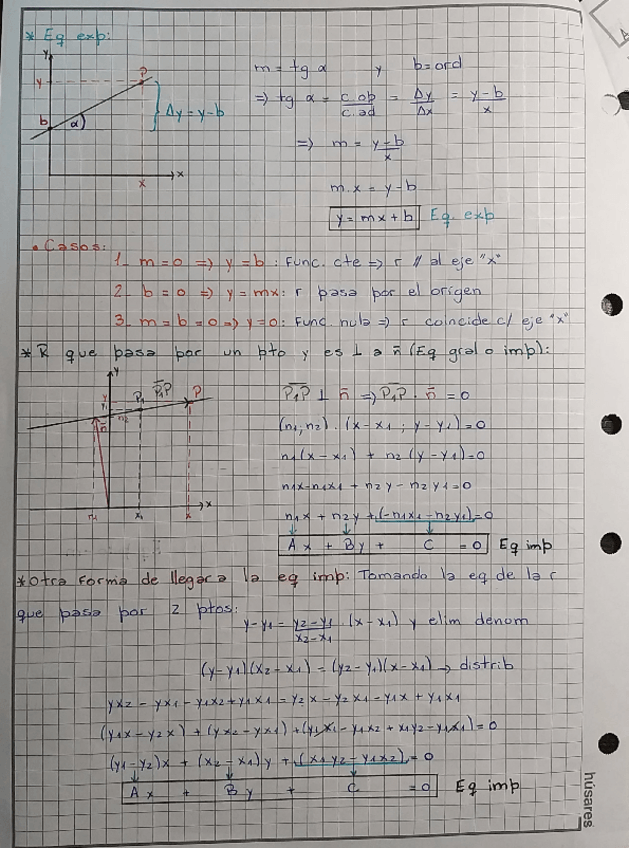 * Eq exp:
y
y
P
b
α
Δy = y-b
x
x
m = tg α y b = ord
=> tg α = c. op / c. ad = Δy / Δx = y-b / x
=> m = y-b / x
m.x = y-b
y = mx + b Eq exp
• Casos:
1_ m=0 => y=b : Func. cte => r // al eje "x"
2_ b=0 => y=mx: r pasa por el origen
3_ m=b=0 => y=0: Func. nula => r coincide c/ eje "x"
* R que pasa por un pto y es ⊥ a n̄ (Eq gral o imp):
y
P₁ P₁P P
y
y₁
n̄
n₂
n₁ x₁ x x
P₁P ⊥ n̄ => P₁P . n̄ = 0
(n₁, n₂) . (x-x₁ ; y-y₁) = 0
n₁(x-x₁) + n₂(y-y₁) = 0
n₁x - n₁x₁ + n₂y - n₂y₁ = 0
n₁x + n₂y + (-n₁x₁ - n₂y₁) = 0
Ax + By + C = 0 Eq imp
* Otra forma de llegar a la eq imp: Tomando la eq de la r
que pasa por 2 ptos:
y-y₁ = y₂-y₁ / x₂-x₁ . (x-x₁) y elim denom
(y-y₁)(x₂-x₁) = (y₂-y₁)(x-x₁) → distrib
yx₂ - yx₁ - y₁x₂ + y₁x₁ = y₂x - y₂x₁ - y₁x + y₁x₁
(y₁x - y₂x) + (yx₂ - yx₁) + (y₁x₁ - y₁x₂ + x₁y₂ - y₁x₁) = 0
(y₁-y₂)x + (x₂-x₁)y + (x₁y₂ - y₁x₂) = 0
Ax + By + C = 0 Eq imp
húsares